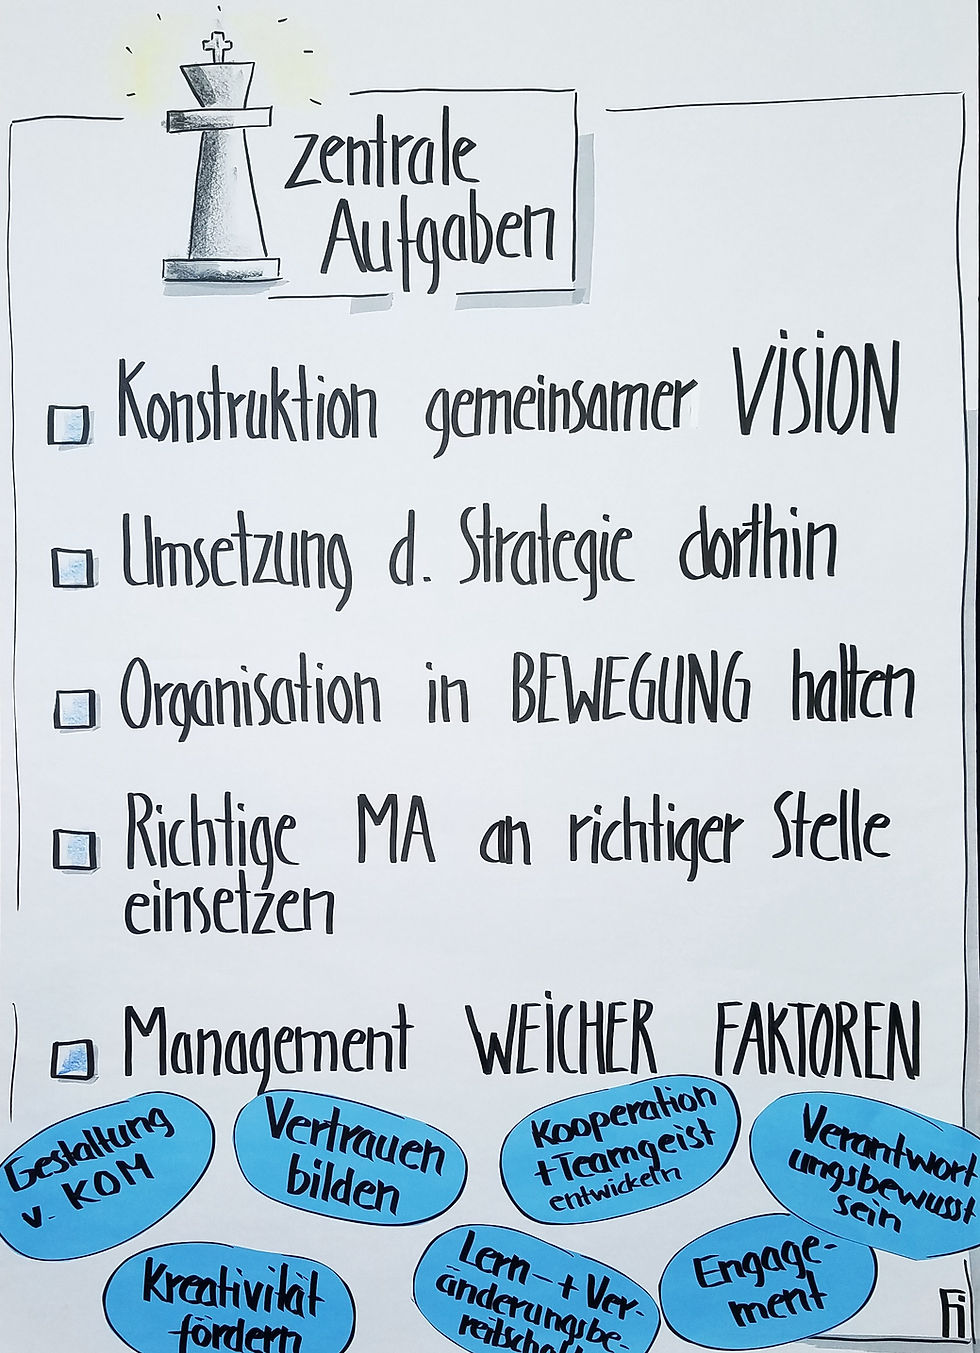 zentrale
Aufgaben
Konstruktion gemeinsamer VISION
Umsetzung d. Strategie dorthin
Organisation in BEWEGUNG halten
Richtige MA an richtiger Stelle
einsetzen
Management WEICHER FAKTOREN
Gestaltung
v. KOM
Vertrauen
bilden
Kooperation
+Teamgeist
entwickeln
Verantwort
ungsbewusst
sein
Kreativität
fördern
Lern- + Ver-
änderungsbe-
Engage-
ment